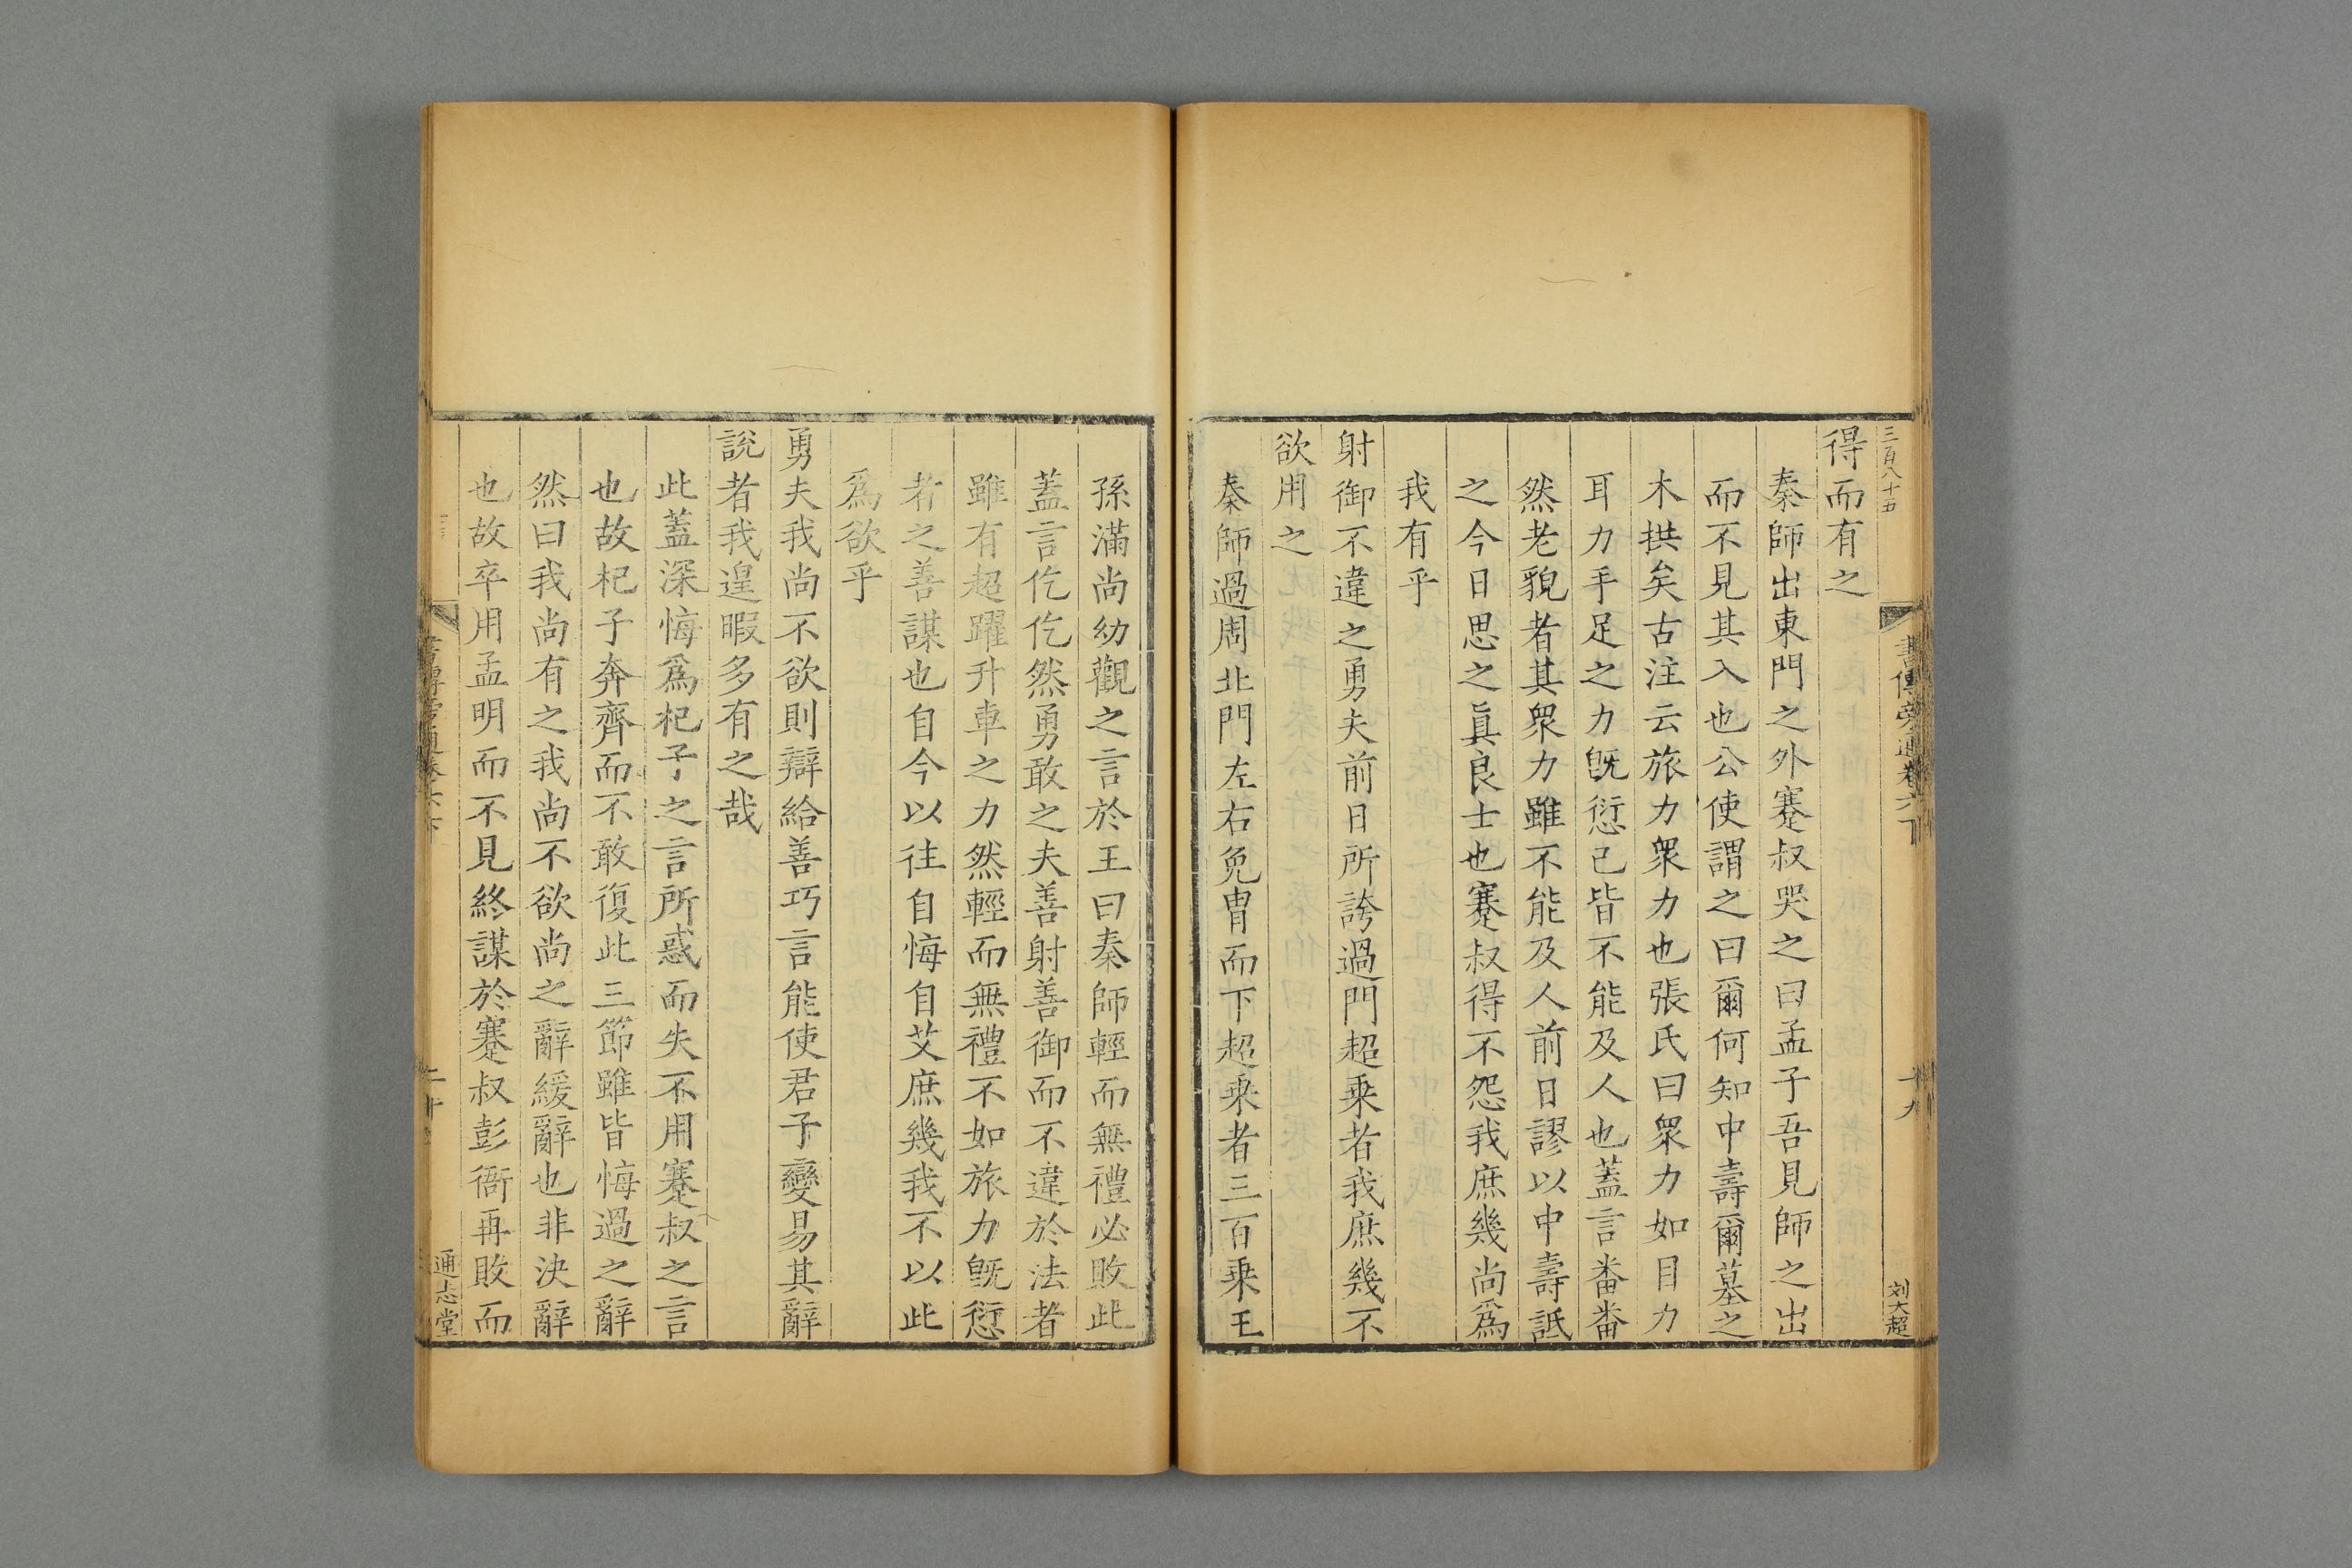 三百八十五
書傳旁通卷六下
十九
刘大超
得而有之
秦師出東門之外蹇叔哭之曰孟子吾見師之出
而不見其入也公使謂之曰爾何知中壽爾墓之
木拱矣古注云旅力衆力也張氏曰衆力如目力
耳力手足之力旣愆己皆不能及人也蓋言番番
然老貌者其衆力雖不能及人前日謬以中壽詆
之今日思之眞良士也蹇叔得不怨我庶幾尚爲
我有乎
射御不違之勇夫前日所誇過門超乘者我庶幾不
欲用之
秦師過周北門左右免冑而下超乘者三百乘王
孫滿尚幼觀之言於王曰秦師輕而無禮必敗此
蓋言仡仡然勇敢之夫善射善御而不違於法者
雖有超躍升車之力然輕而無禮不如旅力旣愆
者之善謀也自今以往自悔自艾庶幾我不以此
爲欲乎
勇夫我尚不欲則辯給善巧言能使君子變易其辭
說者我遑暇多有之哉
此蓋深悔爲杞子之言所惑而失不用蹇叔之言
也故杞子奔齊而不敢復此三節雖皆悔過之辭
然曰我尚有之我尚不欲尚之辭緩辭也非決辭
也故卒用孟明而不見終謀於蹇叔彭衙再敗而
書傳旁通卷六下
二十
通志堂